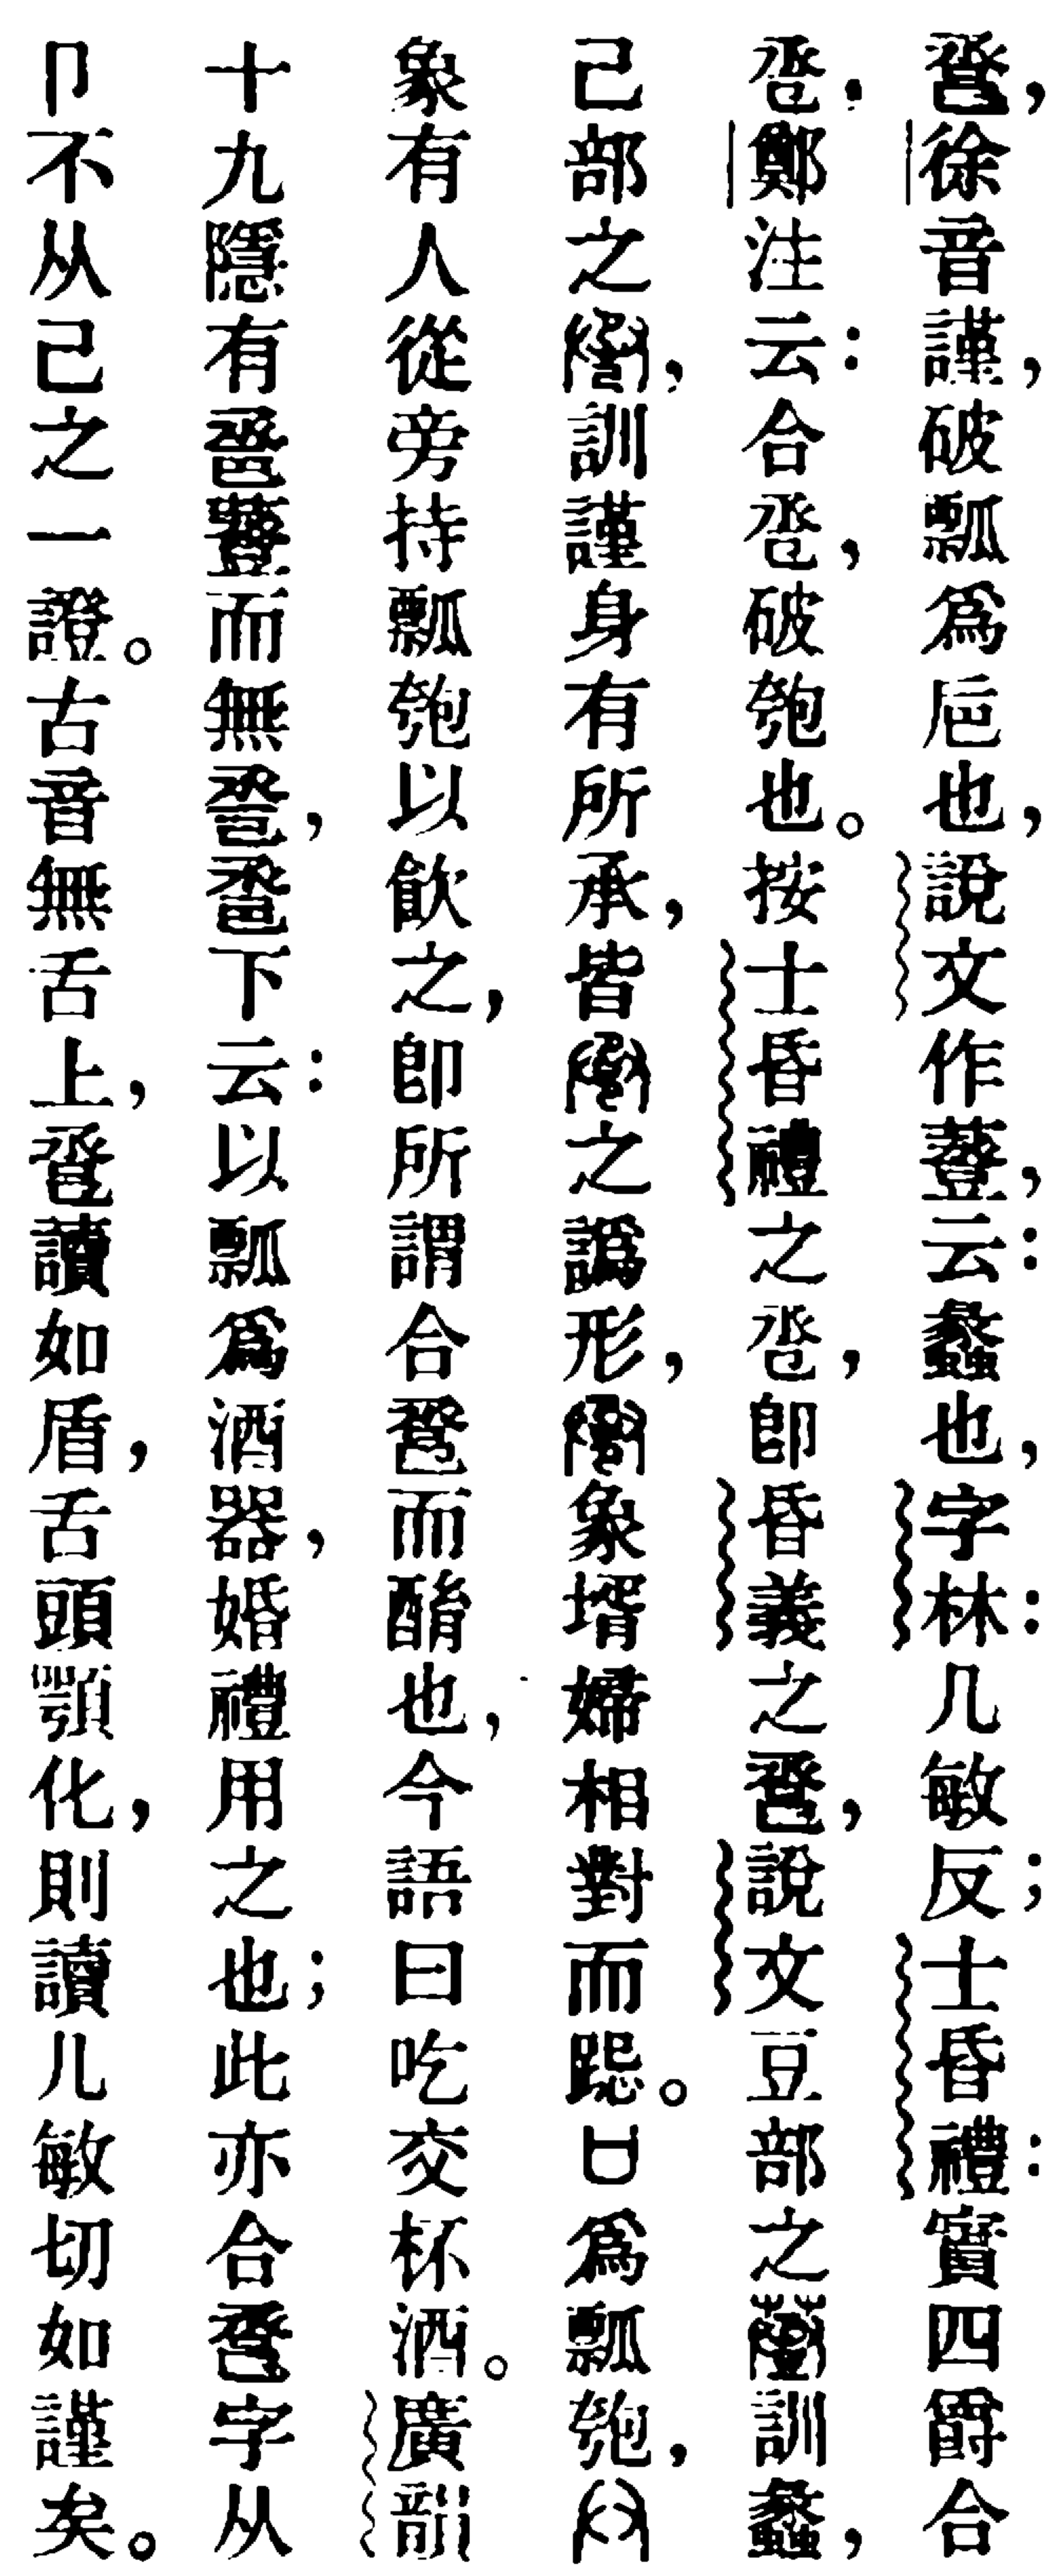 㔸,徐音謹,破瓢爲巵也,說文作𧯷,云:蠡也,字林:几敏反;士昏禮:實四爵合
卺,鄭注云:合卺,破匏也。按士昏禮之卺,卽昏義之㔸,說文豆部之訓蠡,
己部之,訓謹身有所承,皆之譌形,象壻婦相對而跽。口爲瓢匏,
象有人從旁持瓢匏以飲之,卽所謂合㔸而酳也,今語曰吃交杯酒。廣韻
十九隱有𧯷而無,下云:以瓢爲酒器,婚禮用之也;此亦合㔸字从
卩不从己之一證。古音無舌上,㔸讀如盾,舌頭顎化,則讀几敏切如謹矣。